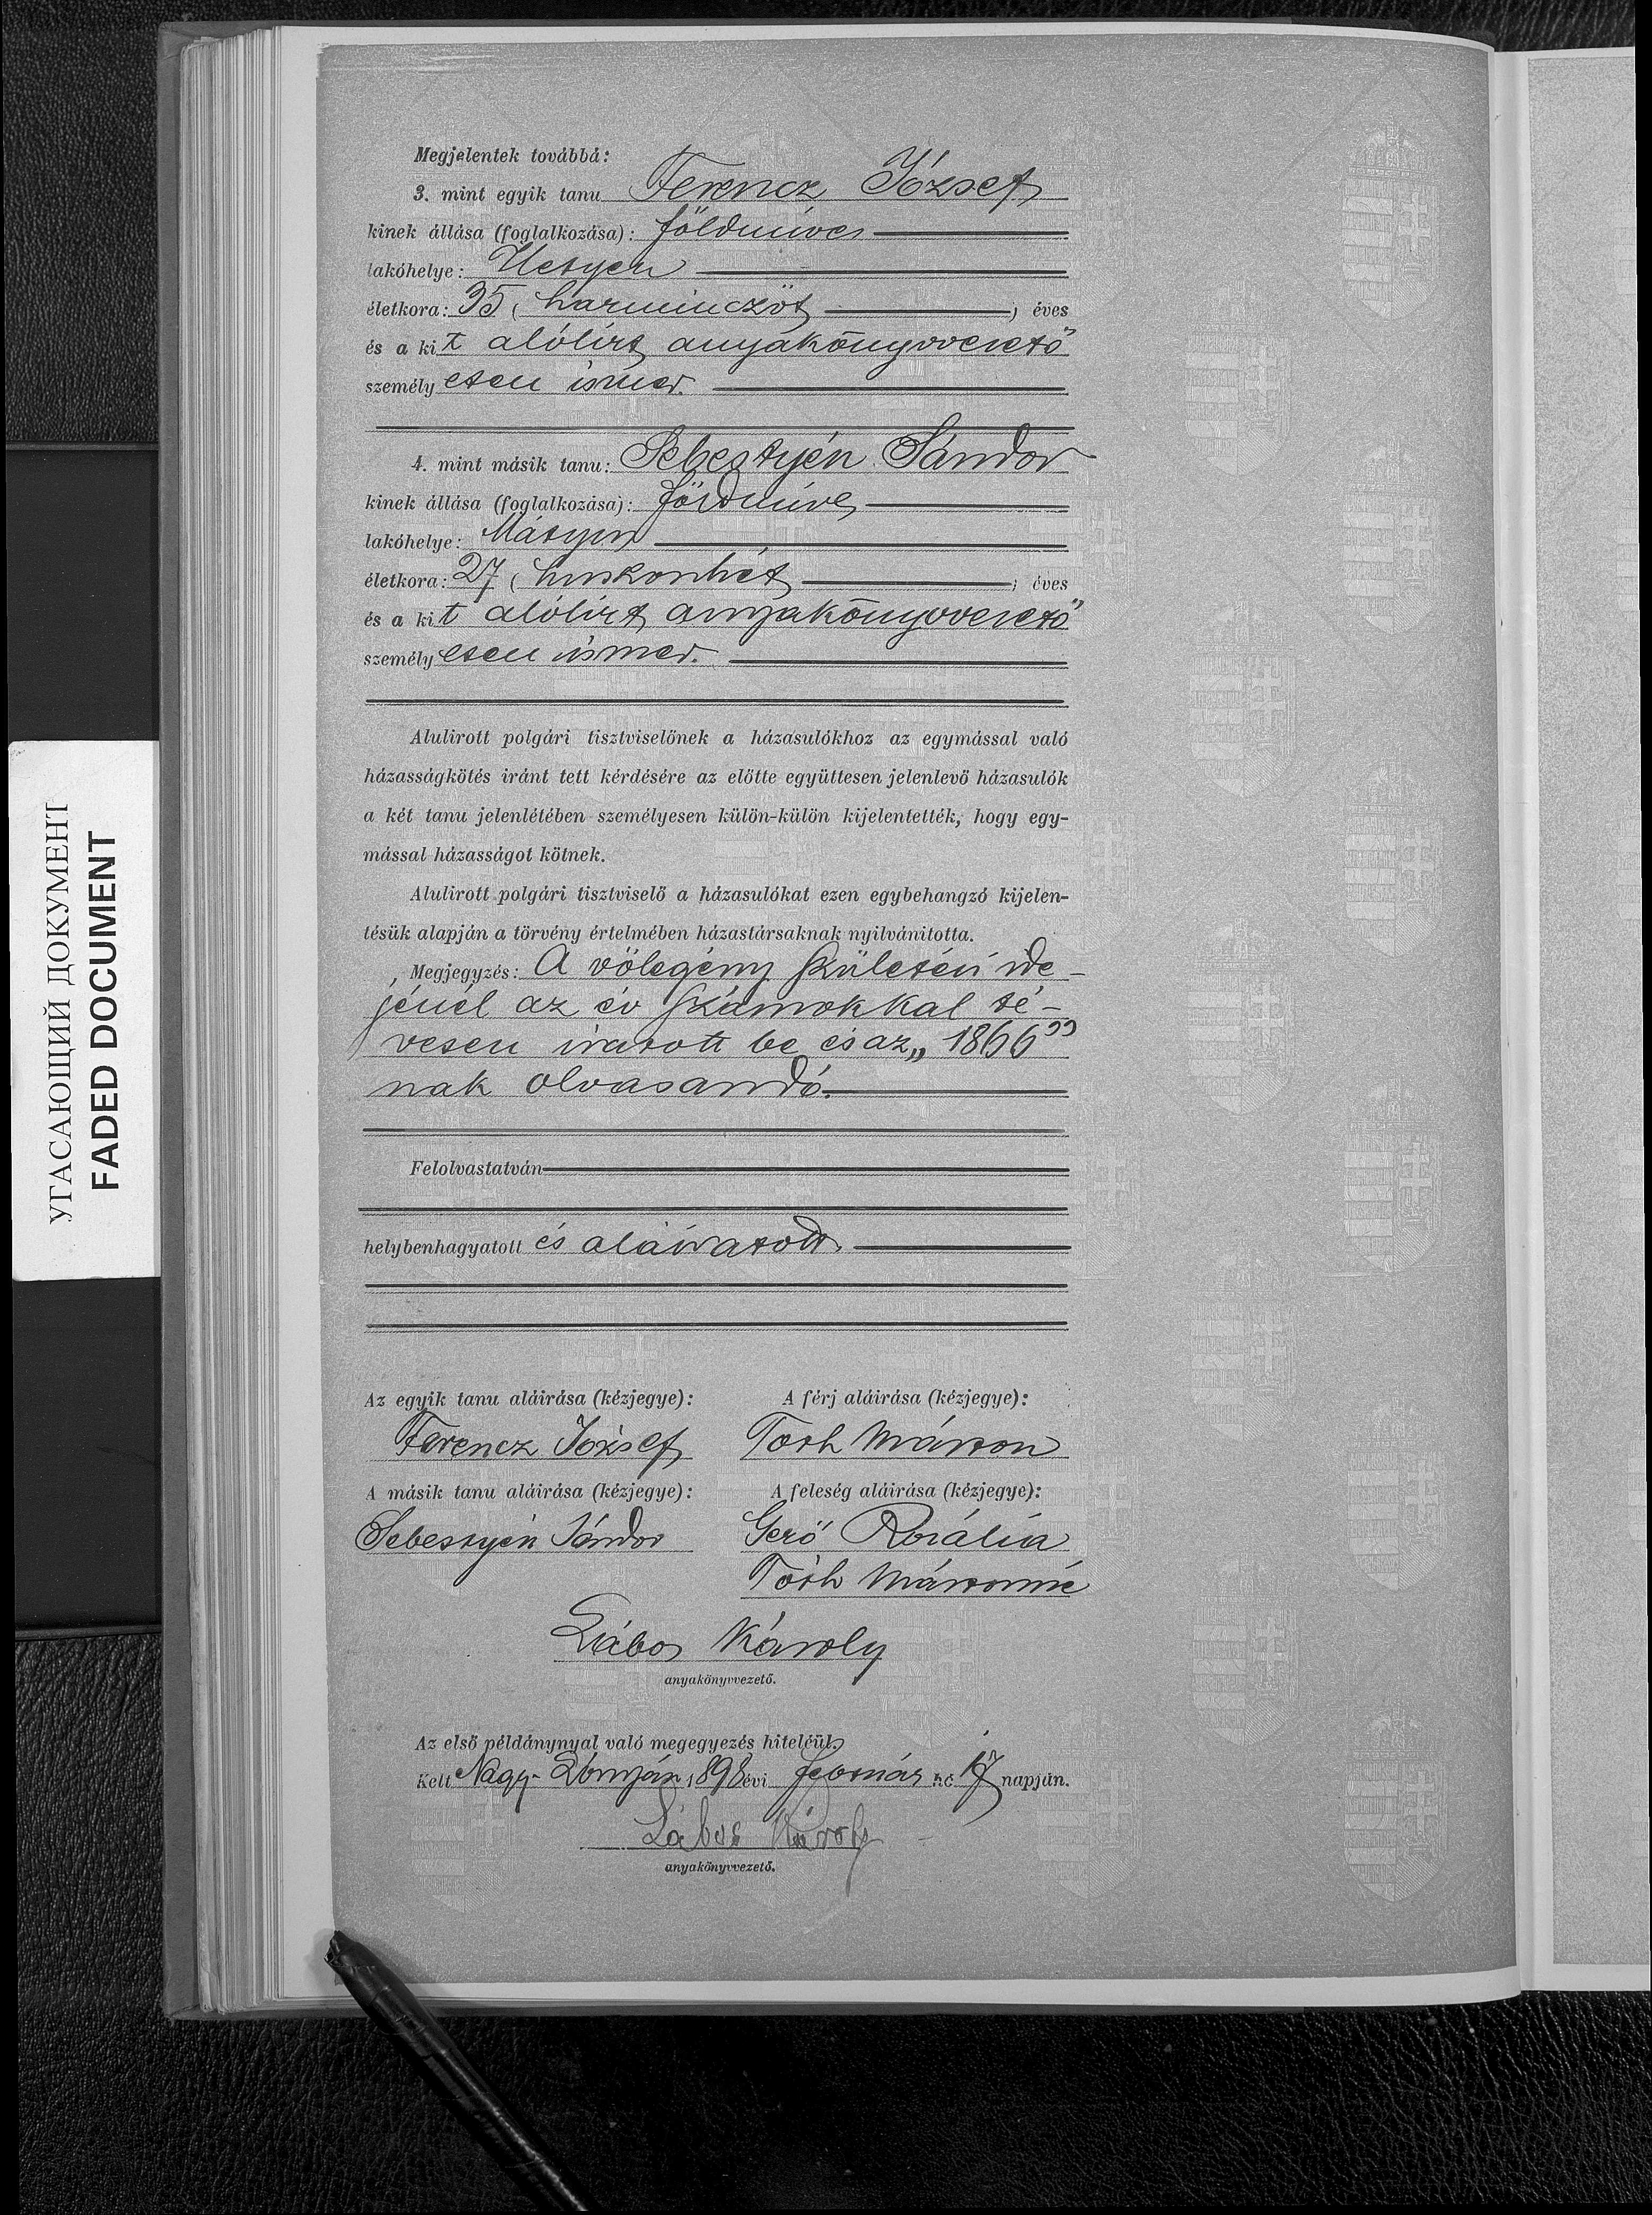 Megjelentek továbbá:
3. mint egyik tanu Ferencz József
kinek állása (foglalkozása): földmives
lakóhelye: Hetyen
életkora: 35 (harminczöt) éves
és a kit alólirt anyakönyvvezető
személyesen ismer.
4. mint másik tanu: Sebestyén Sándor
kinek állása (foglalkozása): földmives
lakóhelye: Mátyus
életkora: 27 (huszonhét) éves
és a kit alólirt anyakönyvvezető
személyesen ismer.
Alulirott polgári tisztviselőnek a házasulókhoz az egymással való
házasságkötés iránt tett kérdésére az előtte együttesen jelenlevő házasulók
a két tanu jelenlétében személyesen külön-külön kijelentették, hogy egy-
mással házasságot kötnek.
Alulirott polgári tisztviselő a házasulókat ezen egybehangzó kijelen-
tésük alapján a törvény értelmében házastársaknak nyilvánitotta.
Megjegyzés: A vőlegény születési ide-
jénél az év számokkal té-
vesen iratott be és az „1866”
nak olvasandó.
Felolvastatván
helybenhagyatott és aláiratott.
Az egyik tanu aláirása (kézjegye): A férj aláirása (kézjegye):
Ferencz József Tóth Márton
A másik tanu aláirása (kézjegye): A feleség aláirása (kézjegye):
Sebestyén Sándor Gerő Rozália
Tóth Mártonné
Lábos Károly
anyakönyvvezető.
Az első példánynyal való megegyezés hiteléül.
Kelt Nagy-Lónyán 1898 évi február hó 17 napján.
Lábos Károly
anyakönyvvezető.
УГАСАЮЩИЙ ДОКУМЕНТ
FADED DOCUMENT